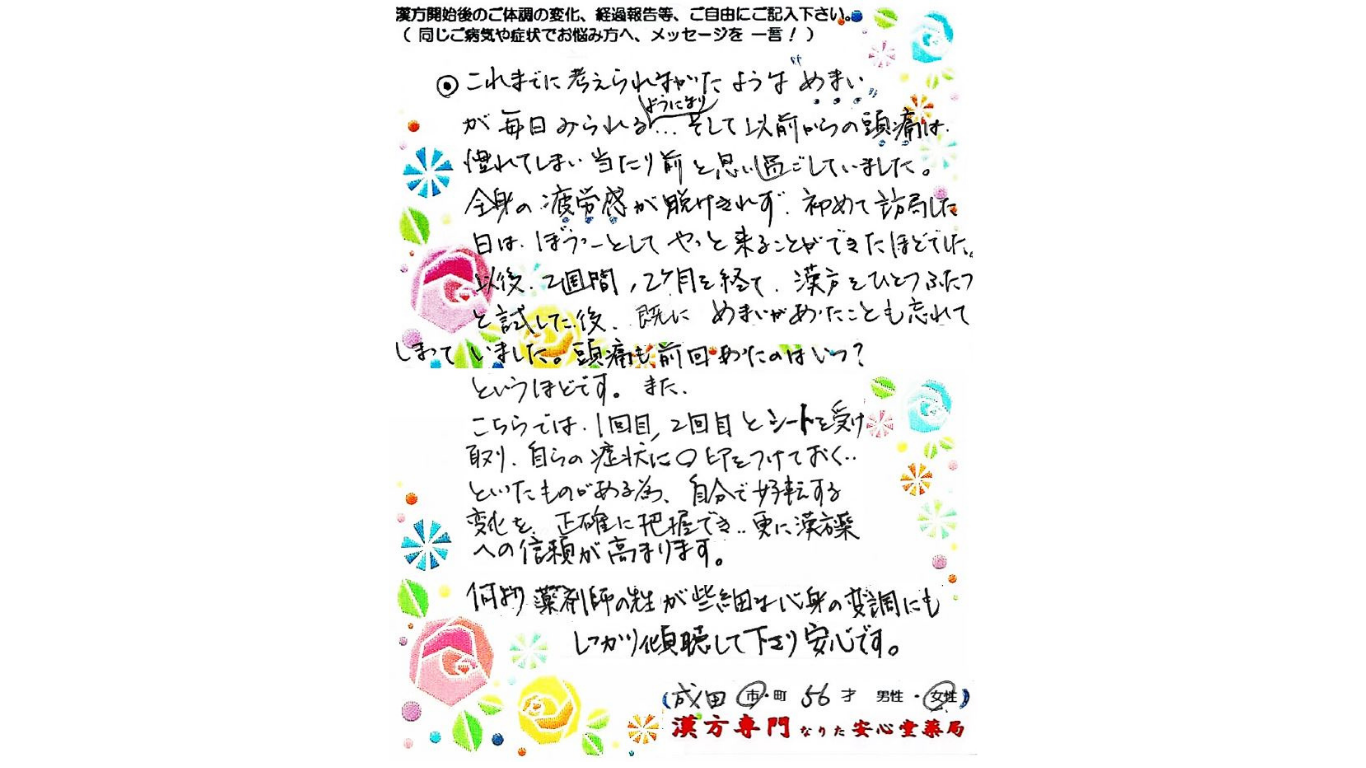 漢方開始後のご体調の変化、経過報告等、ご自由にご記入下さい。
（同じご病気や症状でお悩み方へ、メッセージを 一言！）
◎これまでに考えられなかったような〝めまい〟
が毎日みられるようになり…そして以前からの頭痛は、
慣れてしまい当たり前と思い過ごしていました。
全身の疲労感が脱けきれず、初めて訪局した
日は、ぼうーっとしてやっと来ることができたほどでした。
以後、2週間、2ヶ月を経て、漢方をひとつふたつ
と試した後、既に めまいがあったことも忘れて
しまっていました。頭痛も前回あったのはいつ？
というほどです。また、
こちらでは、1回目、2回目とシートを受け
取り、自らの症状に○印をつけておく‥
といったものがある為、自分で好転する
変化を、正確に把握でき‥更に漢方薬
への信頼が高まります。
何より薬剤師の先生が些細な心身の変調にも
しっかり傾聴して下さり安心です。
（成田 市・町 56才 男性・女性）
漢方専門 なりた安心堂薬局